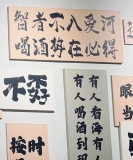 智者不入爱河
喝酒努在必得
不孬
有人看海有人
有人喝酒到
按时
眼
当